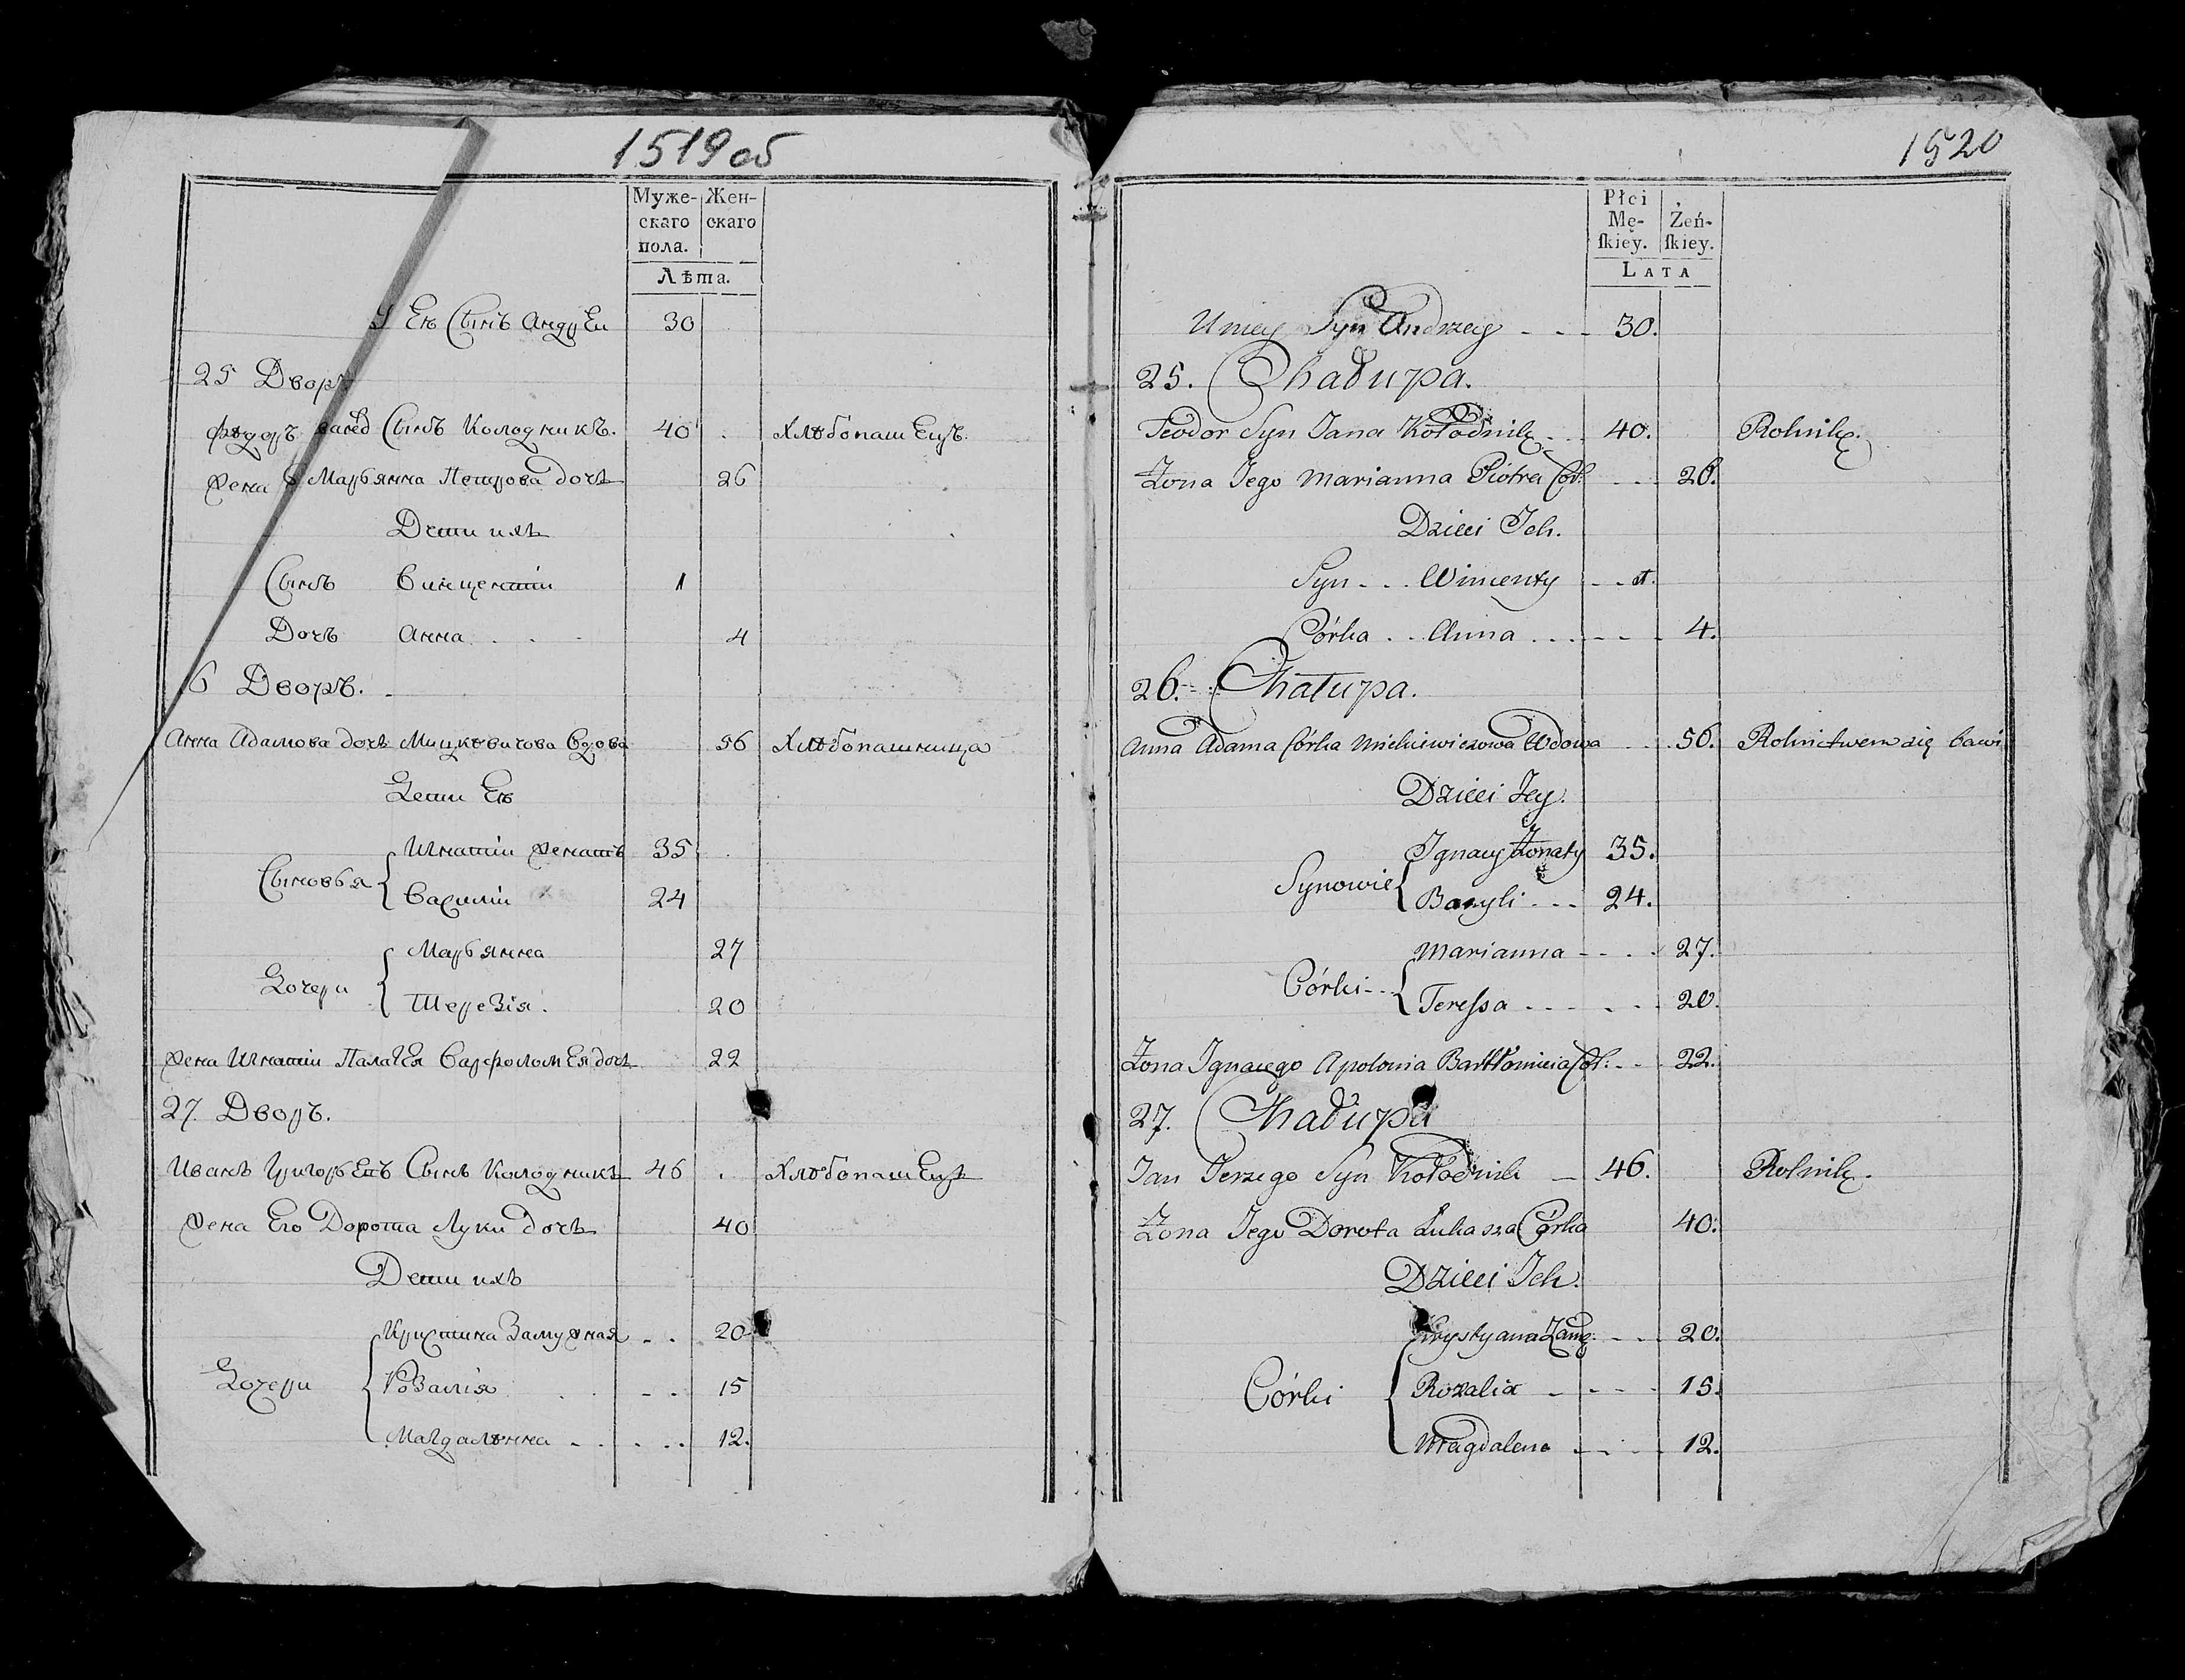 1519 об
Муже-
скаго
пола.
Жен-
скаго
Лѣта.
У Ея Сынъ Андрей 30
25 Дворъ
Федоръ Сынъ Колодникъ. 40 Хлѣбопашецъ.
Жена Марьянна Петрова дочь 26
Дети ихъ
Сынъ Винцентій 1
Дочь Анна 4
6 Дворъ.
Анна Адамова дочь Мицкевичова вдова 56 Хлѣбопашница
Дети Ея
Сыновья
Игнатій женатъ 35
Василій 24
Дочери
Марьянна 27
Терезія. 20
Жена Игнатія Палагея Варфоломея дочь 22
27. Дворъ.
Иванъ Григорьевъ Сынъ Колодникъ 46 Хлѣбопашецъ
Жена Его Дорота Луки дочь 40
Дети ихъ
Дочери
Кристина Замужная 20
Розалія 15
Магдалѣнна 12.
1520
Płci
Mę-
ſkiey.
Żeń-
ſkiey.
LATA
U niey Syn Andrzey 30.
25. Chałupa.
Teodor Syn Jana Kołodnik 40. Rolnik.
Żona Jego Marianna Piotra Cór: 26.
Dzieci Ich.
Syn Wincenty 1.
Córka Anna 4.
26. Chałupa.
Anna Adama Córka Mickiewiczowa Wdowa 56. Rolnictwem się bawi
Dzieci Jey.
Synowie
Ignacy Żonaty 35.
Bazyli 24.
Córki
Marianna 27.
Teressa 20.
Żona Ignacego Apolonia Bartłomieia Cór: 22.
27. Chałupa
Jan Jerzego Syn Kołodnik 46. Rolnik.
Żona Jego Dorota Łukasza Córka 40.
Dzieci Ich.
Córki
Krystyana Zamę: 20.
Rozalia 15.
Magdalena 12.